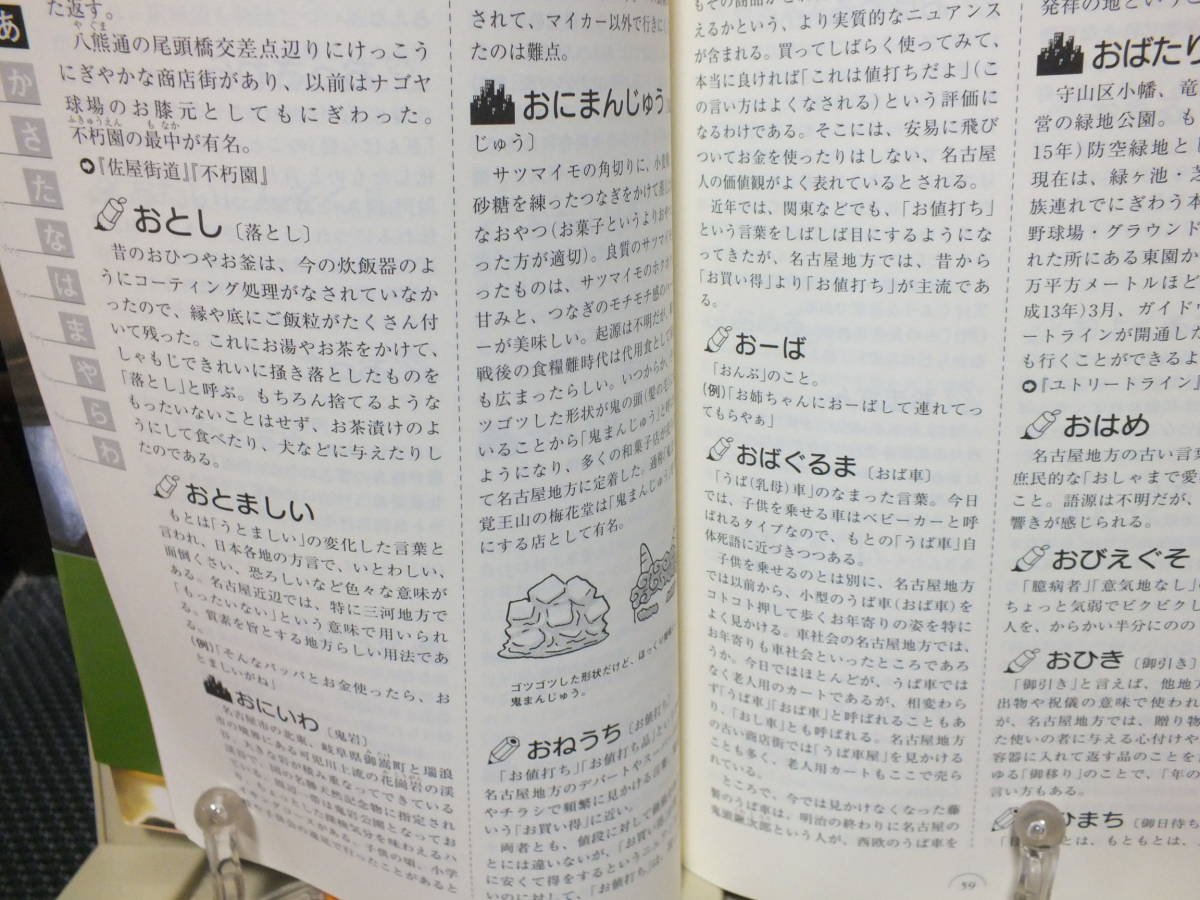 た返す。
八熊通の尾頭橋交差点辺りにけっこう
にぎやかな商店街があり、以前はナゴヤ
球場のお膝元としてもにぎわった。
不朽園の最中が有名。
『佐屋街道』『不朽園』
おとし〔落とし〕
昔のおひつやお釜は、今の炊飯器のよ
うにコーティング処理がなされていなか
ったので、縁や底にご飯粒がたくさん付
いて残った。これにお湯やお茶をかけて、
しゃもじできれいに掻き落としたものを
「落とし」と呼ぶ。もちろん捨てるような
もったいないことはせず、お茶漬けのよ
うにして食べたり、犬などに与えたりし
たのである。
おとましい
もとは「うとましい」の変化した言葉と
言われ、日本各地の方言で、いとわしい、
面倒くさい、恐ろしいなど色々な意味が
ある。名古屋近辺では、特に三河地方で
「もったいない」という意味で用いられ
る。質素を旨とする地方らしい用法であ
る。
(例)「そんなパッパとお金使ったら、お
とましいがね」
おにいわ〔鬼岩〕
名古屋市の北東、岐阜県御嵩町と瑞浪
市の境界にある可児川上流の花崗岩の渓
谷。大きな岩が積み重なってできている
渓谷で、国の名勝天然記念物に指定され
ている。周辺一帯は鬼岩公園となってお
り、ちょっとした探検気分を味わえるハ
イキングコースがある。子供の頃、小学
校や子供会の遠足で行ったことがあると
されて、マイカー以外で行きに
たのは難点。
おにまんじゅう
じゅう〕
サツマイモの角切りに、小麦
砂糖を練ったつなぎをかけて蒸し
なおやつ(お菓子というよりおや
った方が適切)。良質のサツマイ
ったものは、サツマイモのホクホ
甘みと、つなぎのモチモチ感のハー
ーが美味しい。起源は不明だが、
戦後の食糧難時代は代用食として
も広まったらしい。いつからか、
ツゴツした形状が鬼の頭(髪の毛
いることから「鬼まんじゅう」と呼
ようになり、多くの和菓子店が
て名古屋地方に定着した。通称
覚王山の梅花堂は「鬼まんじゅう」
にする店として有名。
ゴツゴツした形状だけど、ほっくり
鬼まんじゅう。
おねうち〔お値打ち〕
「お値打ち」「お値打ち品」
名古屋地方のデパートやスー
やチラシで頻繁に見かける言葉。
いう「お買い得」に近い。
両者とも、値段に対して
とには違いないが、「お買い得」
に安くて得をするというニュ
いのに対して、「お値打ち」は、
もその商品が
えるかという、より実質的なニュアンス
が含まれる。買ってしばらく使ってみて、
本当に良ければ「これは値打ちだよ」(こ
の言い方はよくなされる)という評価に
なるわけである。そこには、安易に飛び
ついてお金を使ったりはしない、名古屋
人の価値観がよく表れているとされる。
近年では、関東などでも、「お値打ち」
という言葉をしばしば目にするようにな
ってきたが、名古屋地方では、昔から
「お買い得」より「お値打ち」が主流であ
る。
おーば
「おんぶ」のこと。
(例)「お姉ちゃんにおーばして連れてっ
てもらやぁ」
おばぐるま〔おば車〕
「うば(乳母)車」のなまった言葉。今日
では、子供を乗せる車はベビーカーと呼
ばれるタイプなので、もとの「うば車」自
体死語に近づきつつある。
子供を乗せるのとは別に、名古屋地方
では以前から、小型のうば車(おば車)を
コトコト押して歩くお年寄りの姿を特に
よく見かける。車社会の名古屋地方では、
お年寄りも車社会といったところであろ
うか。今日ではほとんどが、うば車では
なく老人用のカートであるが、相変わら
ず「うば車」「おば車」と呼ばれることもあ
り、「おし車」とも呼ばれる。名古屋地方
の古い商店街では「うば車屋」を見かける
ことも多く、老人用カートもここで売ら
れている。
ところで、今では見かけなくなった藤
製のうば車は、明治の終わりに名古屋の
鬼頭鎌次郎という人が、西欧のうば車を
発祥の地というこ
おばたり
守山区小幡、竜
営の緑地公園。も
15年)防空緑地と
現在は、緑ヶ池・芝
族連れでにぎわう本
野球場・グラウンド
れた所にある東園か
万平方メートルほど
成13年)3月、ガイド
ートラインが開通し
も行くことができるよ
『ユトリートライン』
おはめ
名古屋地方の古い言葉
庶民的な「おしゃまで愛
こと。語源は不明だが、
響きが感じられる。
おびえぐそ
「臆病者」「意気地なし」
ちょっと気弱でビクビクし
人を、からかい半分にのの
おひき〔御引き〕
「御引き」と言えば、他地
出物や祝儀の意味で使われ
が、名古屋地方では、贈り物
た使いの者に与える心付けや
容器に入れて返す品のことを
ゆる「御移り」のことで、「年の
言い方もある。
ひまち〔御日待ち
とは、もともとは、
59
あ
か
さ
た
な
は
ま
や
ら
わ